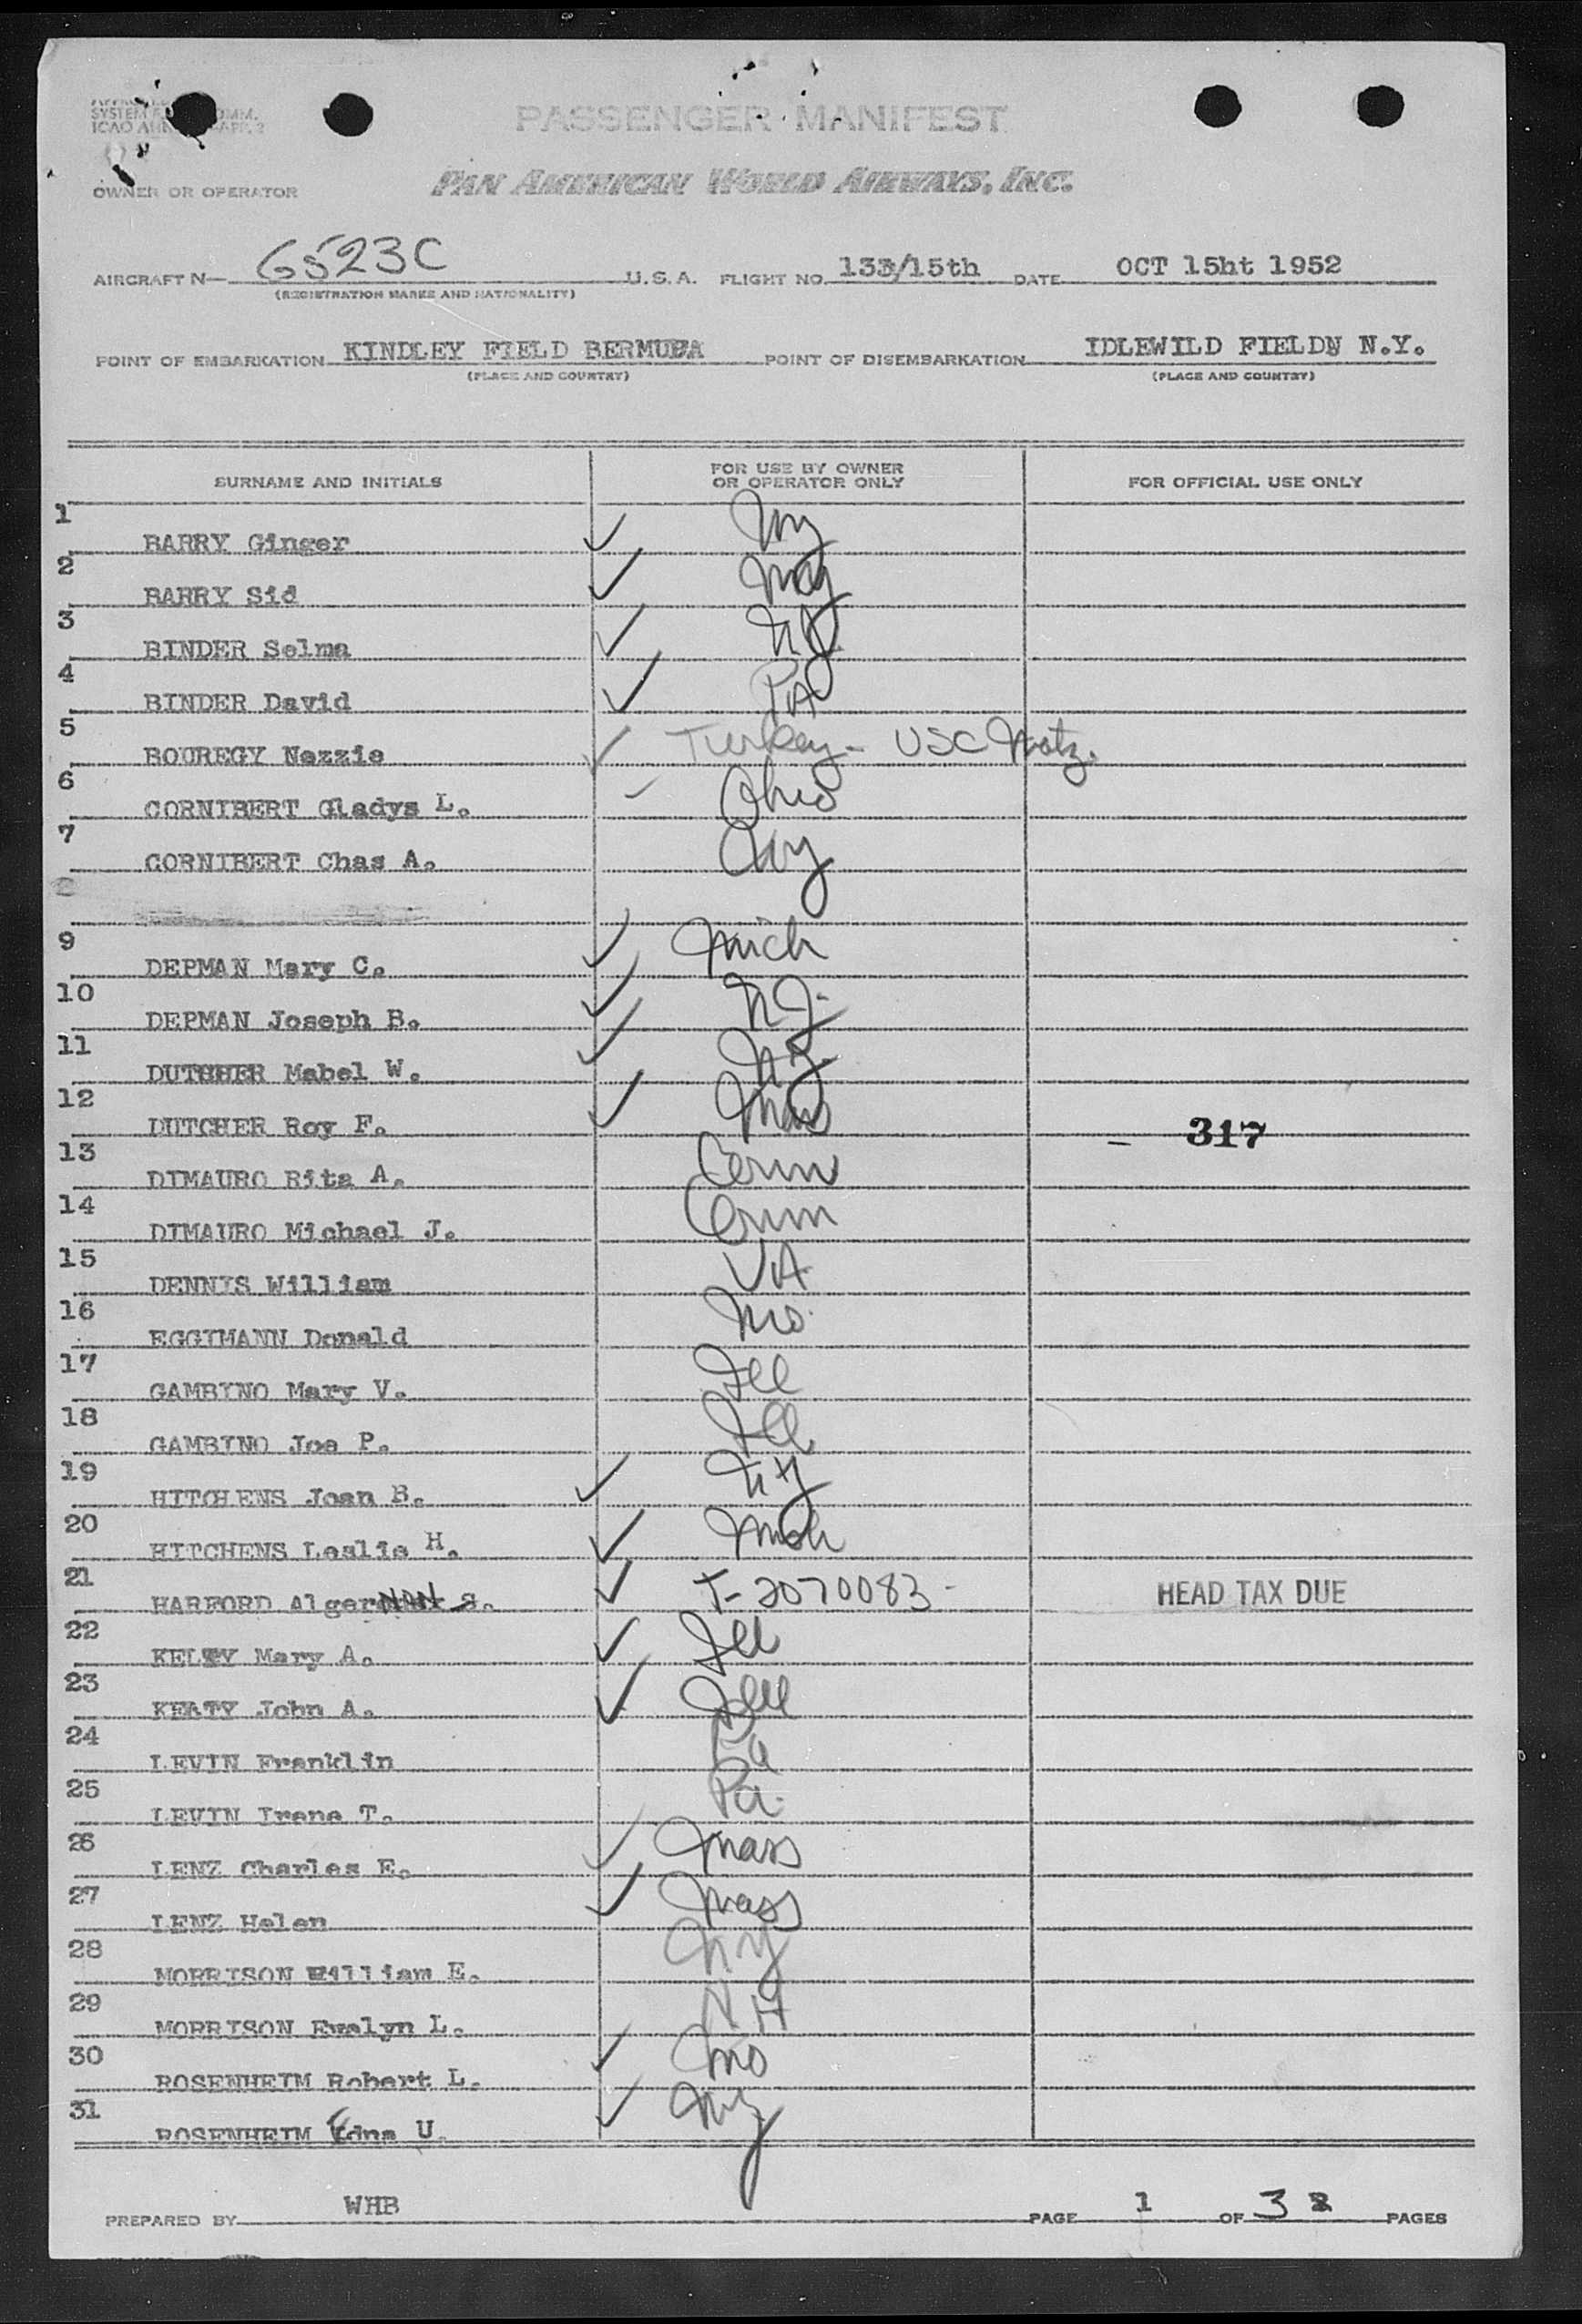 SYSTEM
ICAO
PASSENGER MANIFEST
OWNER OR OPERATOR
PAN AMERICAN WORLD AIRWAYS, INC.
AIRCRAFT N— 6523C U.S.A. FLIGHT NO. 133/15th DATE OCT 15ht 1952
(REGISTRATION MARKS AND NATIONALITY)
POINT OF EMBARKATION KINDLEY FIELD BERMUDA POINT OF DISEMBARKATION IDLEWILD FIELD N.Y.
(PLACE AND COUNTRY) (PLACE AND COUNTRY)
SURNAME AND INITIALS FOR USE BY OWNER OR OPERATOR ONLY FOR OFFICIAL USE ONLY
1 BARRY Ginger ✓ Ny
2 BARRY Sid ✓ Ny
3 BINDER Selma ✓ NJ.
4 BINDER David ✓ PA
5 BOUREGY Nezzie ✓ Turkey - USC Natz.
6 CORNIBERT Gladys L. – Ohio
7 CORNIBERT Chas A. Ny
9 DEPMAN Mary C. ✓ Mich
10 DEPMAN Joseph B. ✓ NJ.
11 DUTCHER Mabel W. ✓ NJ.
12 DUTCHER Roy F. ✓ Mass – 317
13 DIMAURO Rita A. Conn
14 DIMAURO Michael J. Conn
15 DENNIS William VA
16 EGGIMANN Donald Mo.
17 GAMBINO Mary V. Ill
18 GAMBINO Joe P. Ill
19 HITCHENS Joan B. ✓ NY
20 HITCHENS Leslie H. ✓ Mich
21 HARFORD AlgerNON S. ✓ T-2070083- HEAD TAX DUE
22 KELTY Mary A. ✓ Ill
23 KELTY John A. ✓ Ill
24 LEVIN Franklin Pa
25 LEVIN Irene T. Pa.
26 LENZ Charles E. ✓ Mass
27 LENZ Helen ✓ Mass
28 MORRISON William E. NY
29 MORRISON Evelyn L. NH
30 ROSENHEIM Robert L. ✓ Mo
31 ROSENHEIM Edna U. ✓ Ny
PREPARED BY WHB PAGE 1 OF 3 PAGES